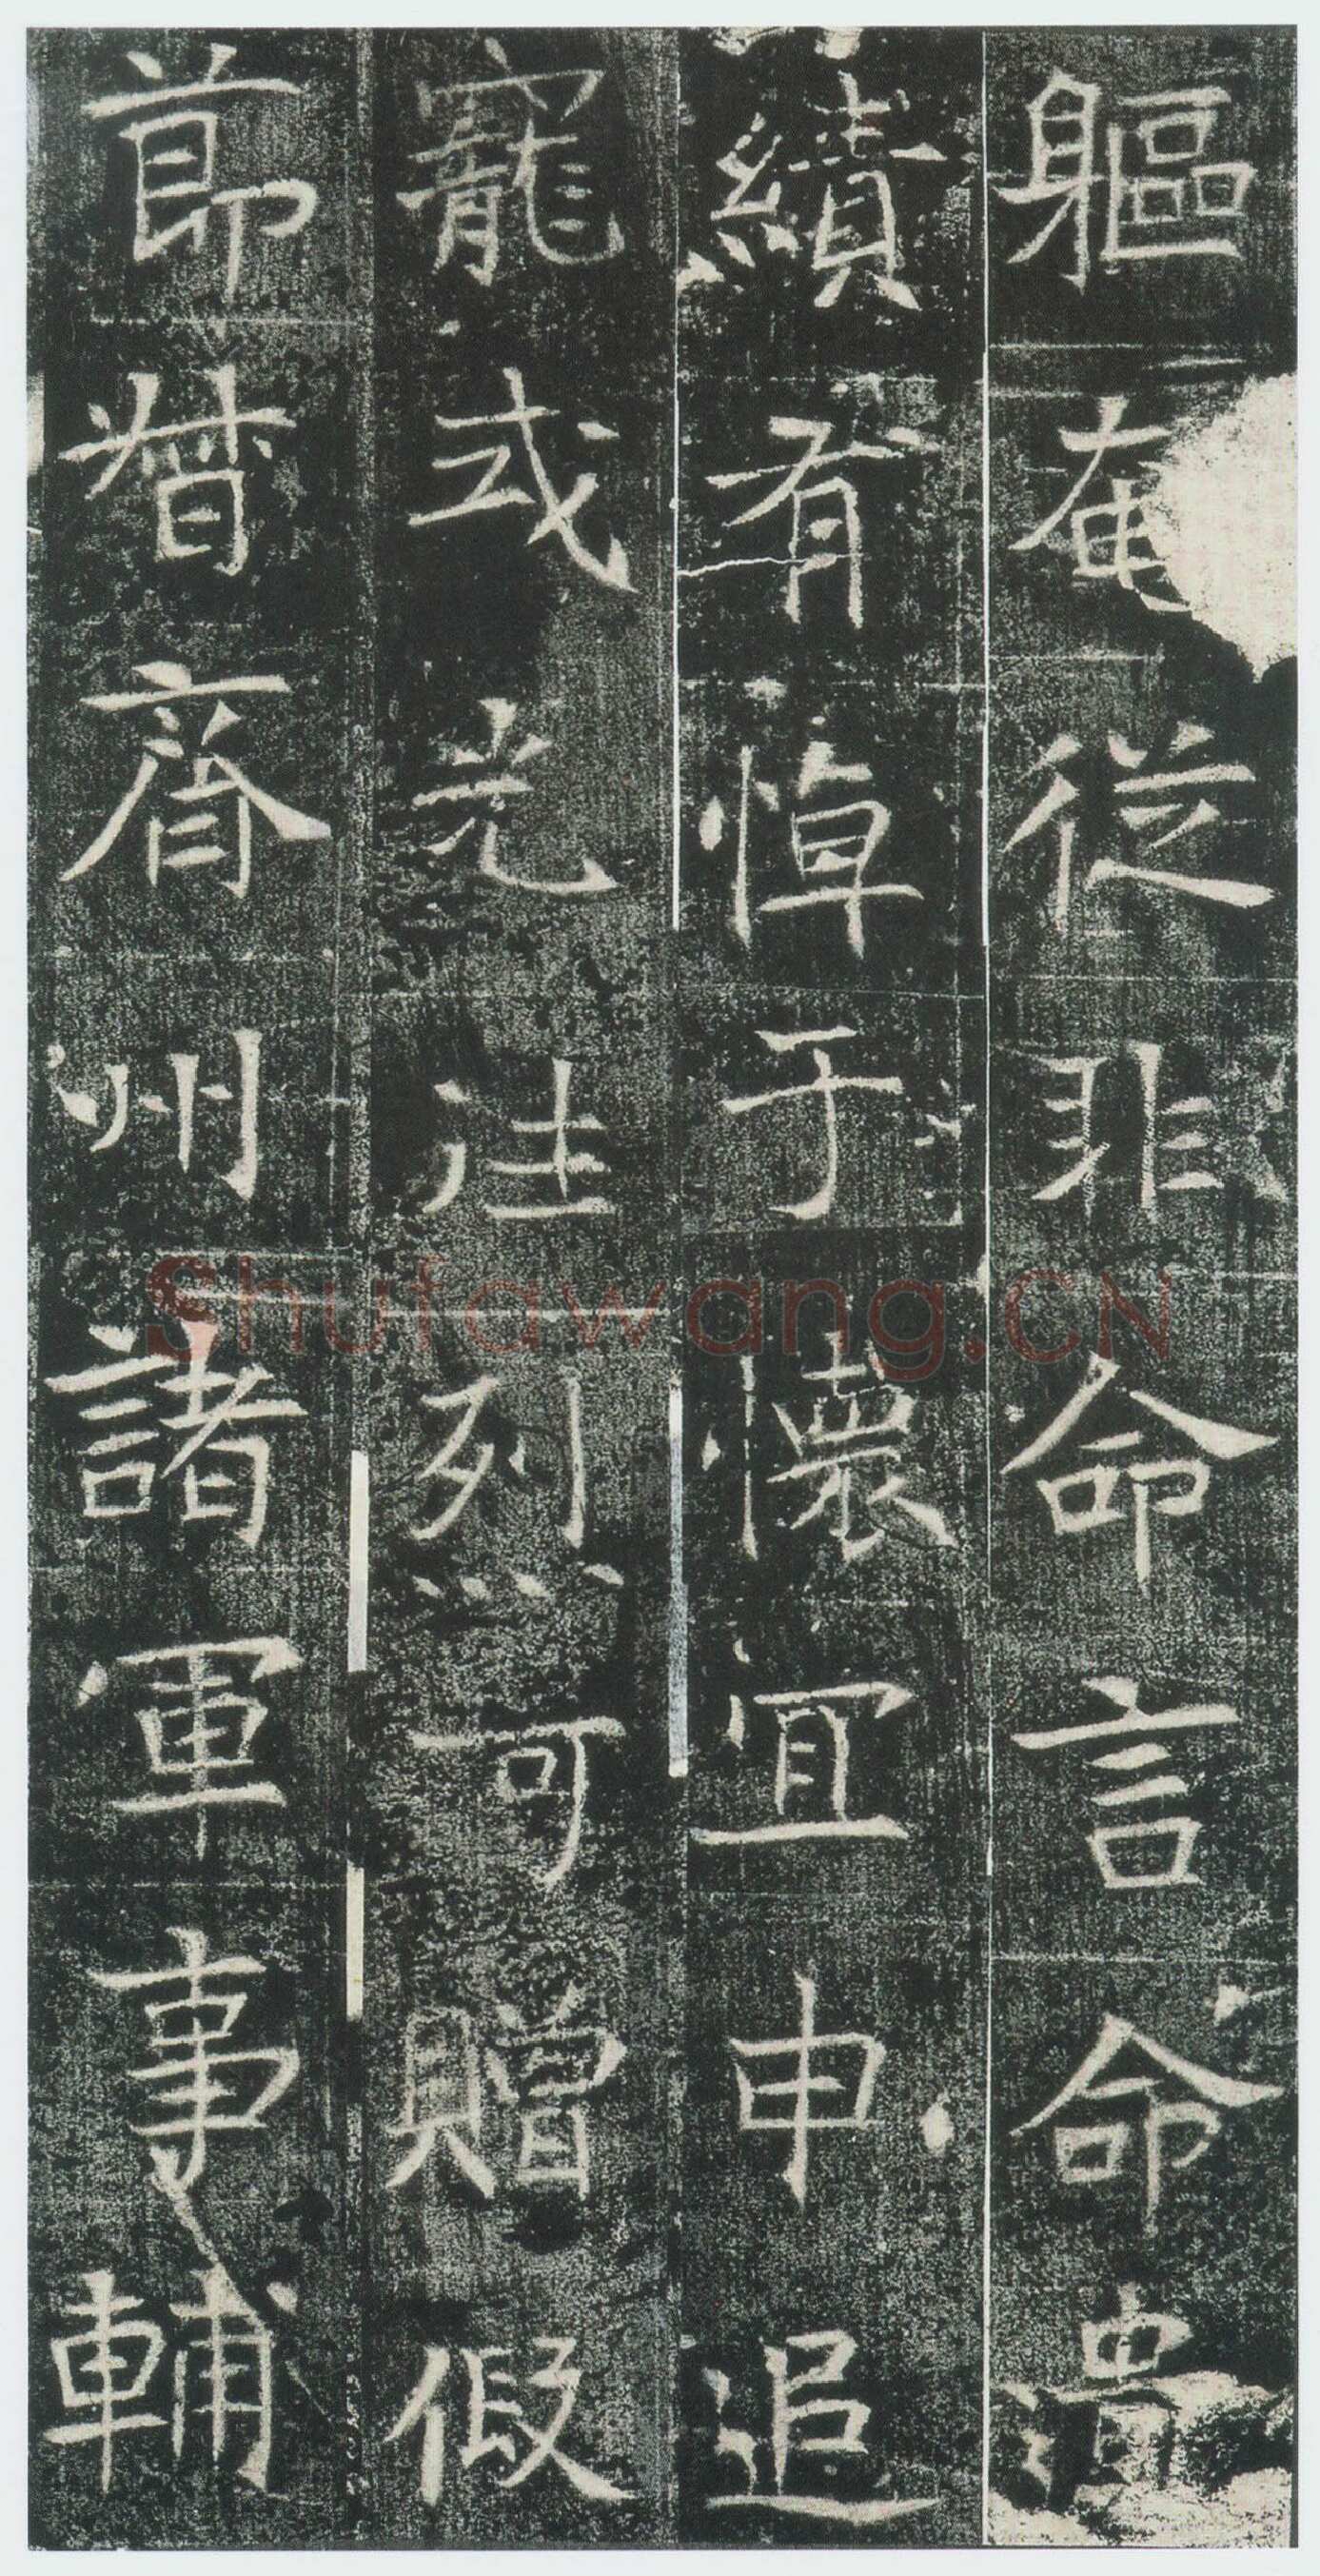 軀奄從非命言命遺
績有悼于懷宜申追
寵式光往烈可贈假
節督齊州諸軍事輔
Shufawang.CN